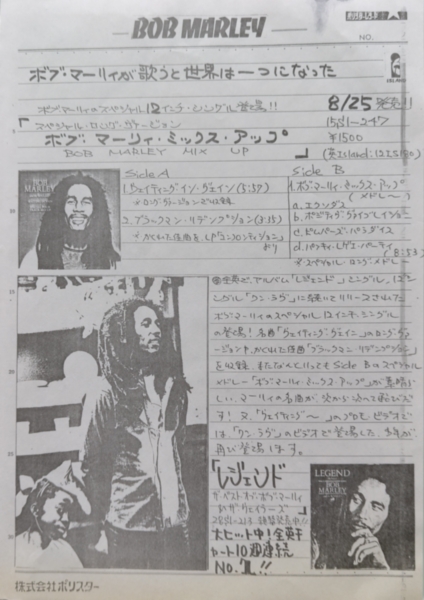 BOB MARLEY
NO.
ボブ・マーリィが歌うと世界は一つになった
ボブ・マーリィのスペシャル12インチ・シングル登場!!
8/25発売!!
「スペシャル・ロング・ヴァージョン
15SI-247
ボブ・マーリィ・ミックス・アップ
¥1500
BOB MARLEY MIX UP
」
Side A
1. ウェイティング・イン・ヴェイン (5:57)
※ロング・ヴァージョンでは収録
2. ブラックマン・リデンプション (3:15)
※かくれた佳曲を、LP「コンフロンティション」より
Side B
1. ボブ・マーリィ・ミックス・アップ
(メドレー)
a. エクソダス
b. ポジティヴ・ヴァイブレイション
c. ピンパーズ・パラダイス
d. パンキィ・レゲエ・パーティ
(8:53)
※スペシャル・ロング・メドレー
BOB MARLEY
◎全英で、アルバム「レジェンド」、シングル、12シ
ングル「ワン・ラヴ」に続いてリリースされた
ボブ・マーリィのスペシャル12インチ・シングル
の登場! 名曲「ウェイティング・ヴェイン」のロング・ヴァ
ージョンや、かくれた佳曲「ブラックマン・リデンプション」
を収録。またなんといってもSide Bのスペシャル
メドレー「ボブ・マーリィ・ミックス・アップ」が素晴ら
しい。マーリィの名曲が次から次へと飛び出
す! 又、「ウェイティング〜」のプロモ・ビデオで
は、「ワン・ラヴ」のビデオで登場した少年が
再び登場します。
「レジェンド
ザ・ベスト・オブ・ボブ・マーリィ
&ザ・ウェイラーズ」
28SI-213 絶賛発売中!!
大ヒット中! 全英チ
ャート10週連続
NO.1!!
LEGEND
BOB
MARLEY
株式会社ポリスター